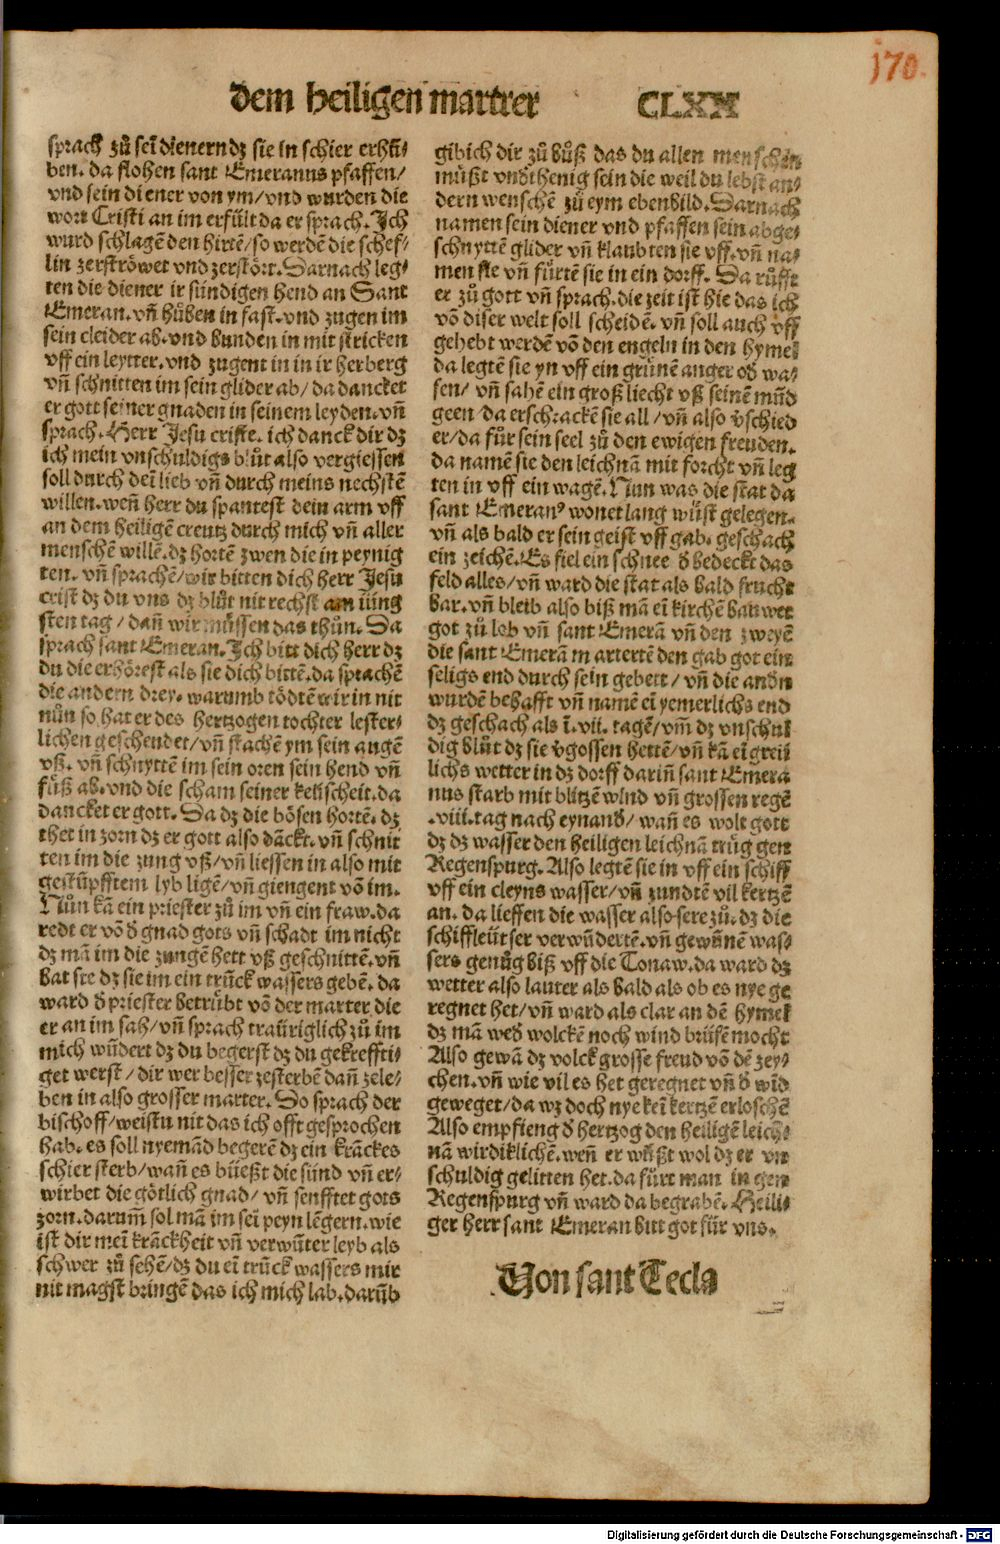 170.
dem heiligen martrer CLXX
sprach zů seī dienern dʒ sie in schier erhū-
ben. da flohen sant Emeranus pfaffen/
vnd sein diener von ym/vnd wurden die
wort Cristi an im erfült da er sprach. Ich
wurd schlagē den hirtē/so werdē die schef-
lin zerströwet vnd zerstört. Darnach leg-
ten die diener ir sündigen hend an Sant
Emeran. vñ hůben in fast. vnd zugen im
sein cleider ab. vnd bunden in mit stricken
vff ein leytter. vnd zugent in in ir herberg
vñ schnitten im sein glider ab/ da dancket
er gott seiner gnaden in seinem leyden. vñ
sprach. Herr Jesu criste. ich danck dir dʒ
ich mein vnschuldigs blůt also vergiessen
soll durch deī lieb vñ durch meins nechstē
willen. weñ herr du spantest dein arm vff
an dem heiligē creutz durch mich vñ aller
menschē willē. dʒ hortē zwen die in peynig
ten. vñ sprachē/wir bitten dich herr Jesu
crist dʒ du vns dʒ blůt nit rechst am iüng
sten tag/ dañ wir müssen das thůn. Da
sprach sant Emeran. Ich bitt dich herr dʒ
du die erhörest als sie dich bittē. da sprachē
die andern drey. warumb tödtē wir in nit
nůn so hat er des hertzogen tochter lester-
lichen geschendet/vñ stachē ym sein augē
vß. vñ schnyttē im sein oren sein hend vñ
füß ab. vnd die scham seiner keüscheit. da
dancket er gott. Da dʒ die bösen hortē. dʒ
thet in zorn dʒ er gott also dāckt. vñ schnit
ten im die zung vß/vñ liessen in also mit
gestüpfftem lyb ligē/vñ giengent vō im.
Nůn kā ein priester zů im vñ ein fraw. da
redt er vō d̄ gnad gots vñ schadt im nicht
dʒ mā im die zungē hett vß geschnittē. vñ
bat sie dʒ sie im ein trūck wassers gebē. da
ward d̄ priester betrübt vō der marter die
er an im sah/vñ sprach traüriglich zů im
mich wūdert dʒ du begerst dʒ du gekreffti-
get werst/ dir wer besser zesterbē dañ zele-
ben in also grosser marter. Do sprach der
bischoff/weistu nit das ich offt gesprochen
hab. es soll nyemād begerē dʒ ein krāckes
schier sterb/wañ es büeßt die sünd vñ er-
wirbet die götlich gnad/ vñ senfftet gots
zorn. darum̄ sol mā im seī peyn lēgern. wie
ist dir meī krāckheit vñ verwūter leyb als
schwer zů sehē/dʒ du eī trūck wassers mir
nit magst bringē das ich mich lab. darūb
gib ich dir zů bůß das du allen menschen
müßt vnd̄thenig sein die weil du lebst an-
dern wenschē zů eym ebenbild. Darnach
namen sein diener vnd pfaffen sein abge-
schnyttē glider vñ klaubten sie vff. vñ na-
men sie vñ fürtē sie in ein dorff. Da růfft
er zů gott vñ sprach. die zeit ist hie das ich
vō diser welt soll scheidē. vñ soll auch vff
gehebt werdē vō den engeln in den hymel
da legtē sie yn vff ein grünē anger od̄ wa-
sen/ vñ sahē ein groß liecht vß seinē mūd
geen/da erschrackē sie all/ vñ also v̄schied
er/da für sein seel zů den ewigen freuden.
da namē sie den leichnā mit forcht vñ leg
ten in vff ein wagē. Nun was die stat da
sant Emeranꝰ wonet lang wüst gelegen.
vñ als bald er sein geist vff gab. geschach
ein zeichē. Es fiel ein schnee d̄ bedeckt das
feld alles/vñ ward die stat als bald frucht
bar. vñ bleib also biß mā eī kirchē bauwet
got zů lob vñ sant Emerā vñ den zweyē
die sant Emerā marterten den gab got ein
seligs end durch sein gebett/ vñ die andn̄
wurdē behafft vñ namē eī yemerlichs end
dʒ geschach als ī. vii. tagē/vm̄ dʒ vnschul
dig blůt dʒ sie v̄gossen hettē/vñ kā eī greü
lichs wetter in dʒ dorff dariñ sant Emera
nus starb mit blitzē wind vñ grossen regē
.viii. tag nach eynand̄/ wañ es wolt gott
dʒ dʒ wasser den heiligen leichnā trůg gen
Regenspurg. Also legtē sie in vff ein schiff
vff ein cleyns wasser/ vñ zundtē vil kertzē
an. da lieffen die wasser also sere zů. dʒ die
schiffleütser verwūdertē. vñ gewūnē was-
sers genůg biß vff die Tonaw. da ward dʒ
wetter also lauter als bald als ob es nye ge
regnet het/vñ ward als clar an dē hymel
dʒ mā wed̄ wolckē noch wind brüfē mocht
Also gewā dʒ volck grosse freud vō dē zey-
chen. vñ wie vil es het geregnet vñ d̄ wīd
geweget/da wʒ doch nye keī kertzē erloschē
Also empfieng d̄ hertzog den heiligē leich-
nā wirdiklichē. weñ er wüßt wol dʒ er vn
schuldig gelitten het. da fürt man in gen
Regenspurg vñ ward da begrabē. Heili-
ger herr sant Emeran bitt got für vns.
Von sant Tecla
Digitalisierung gefördert durch die Deutsche Forschungsgemeinschaft - DFG